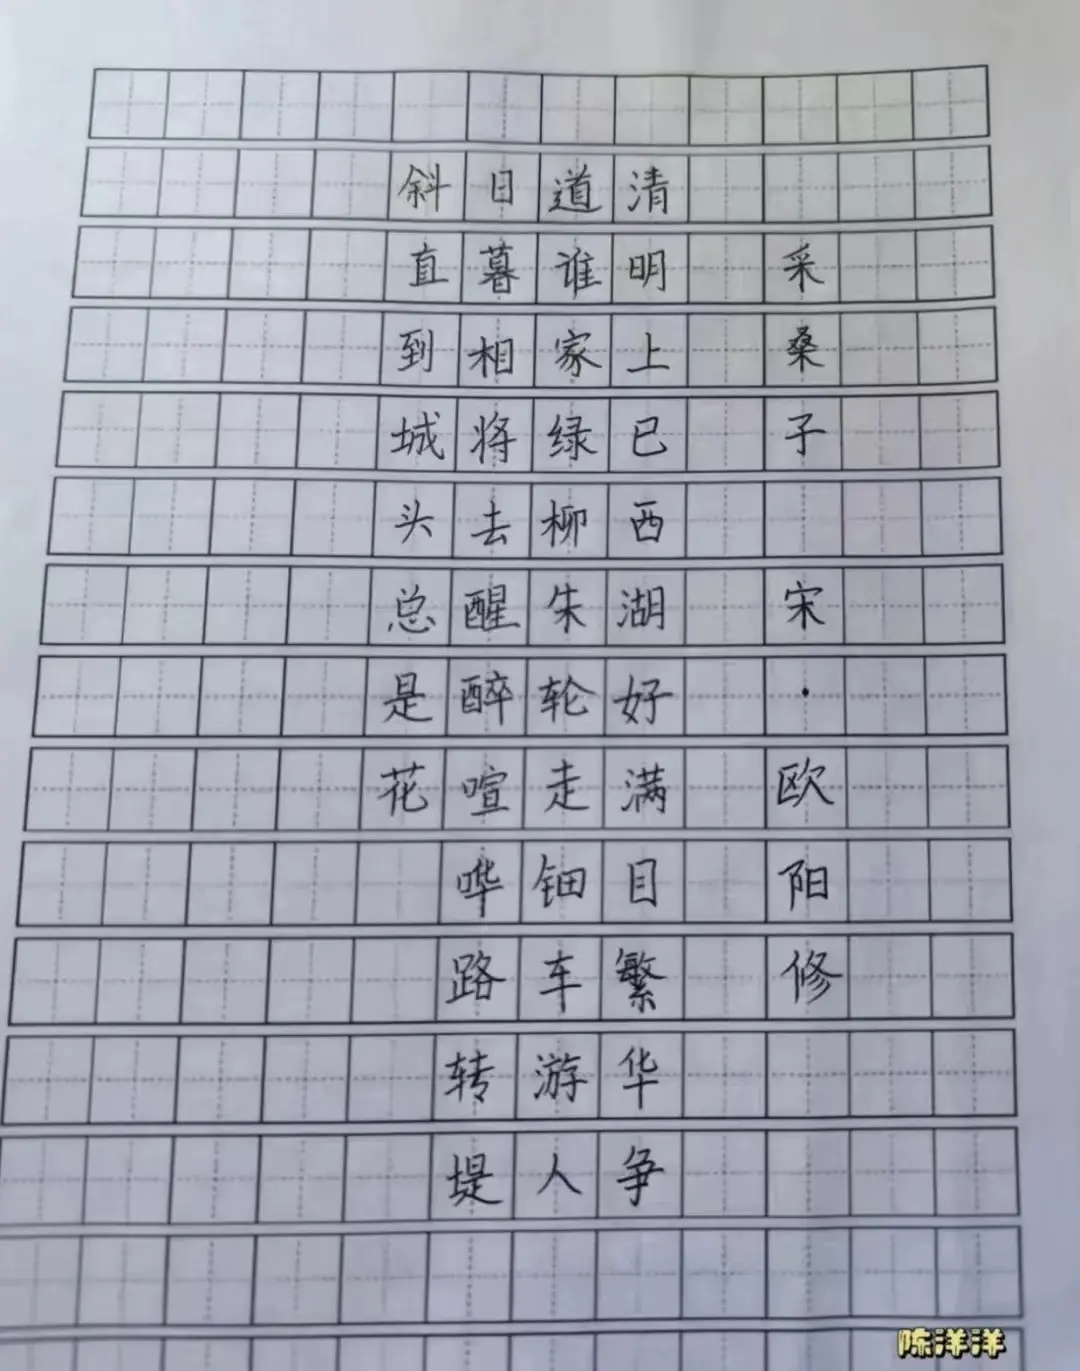 采桑子 宋·欧阳修
清明上已西湖好满目繁华争
道谁家绿柳朱轮走钿车游人
日暮相将去醒醉喧哗路转堤
斜直到城头总是花
陈洋洋